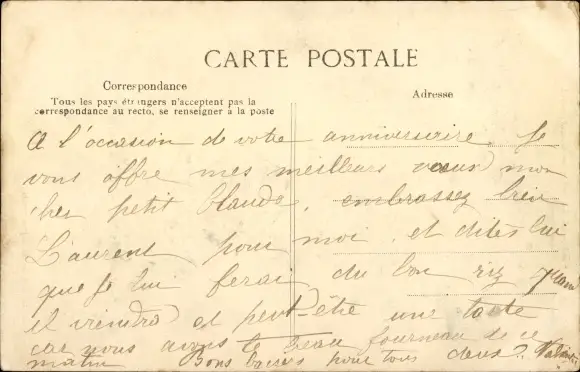 CARTE POSTALE
Correspondance
Adresse
Tous les pays étrangers n'acceptent pas la
correspondance au recto, se renseigner à la poste
A l'occasion de votre anniversaire. Je
vous offre mes meilleurs vœux mon
cher petit Claude, embrassez bien
Laurent pour moi, et dites lui
que je lui ferai du bon riz quand
il viendra et peut-être une tarte
car nous avons le beau fourneau de ce
matin Bons baisers pour tous deux.